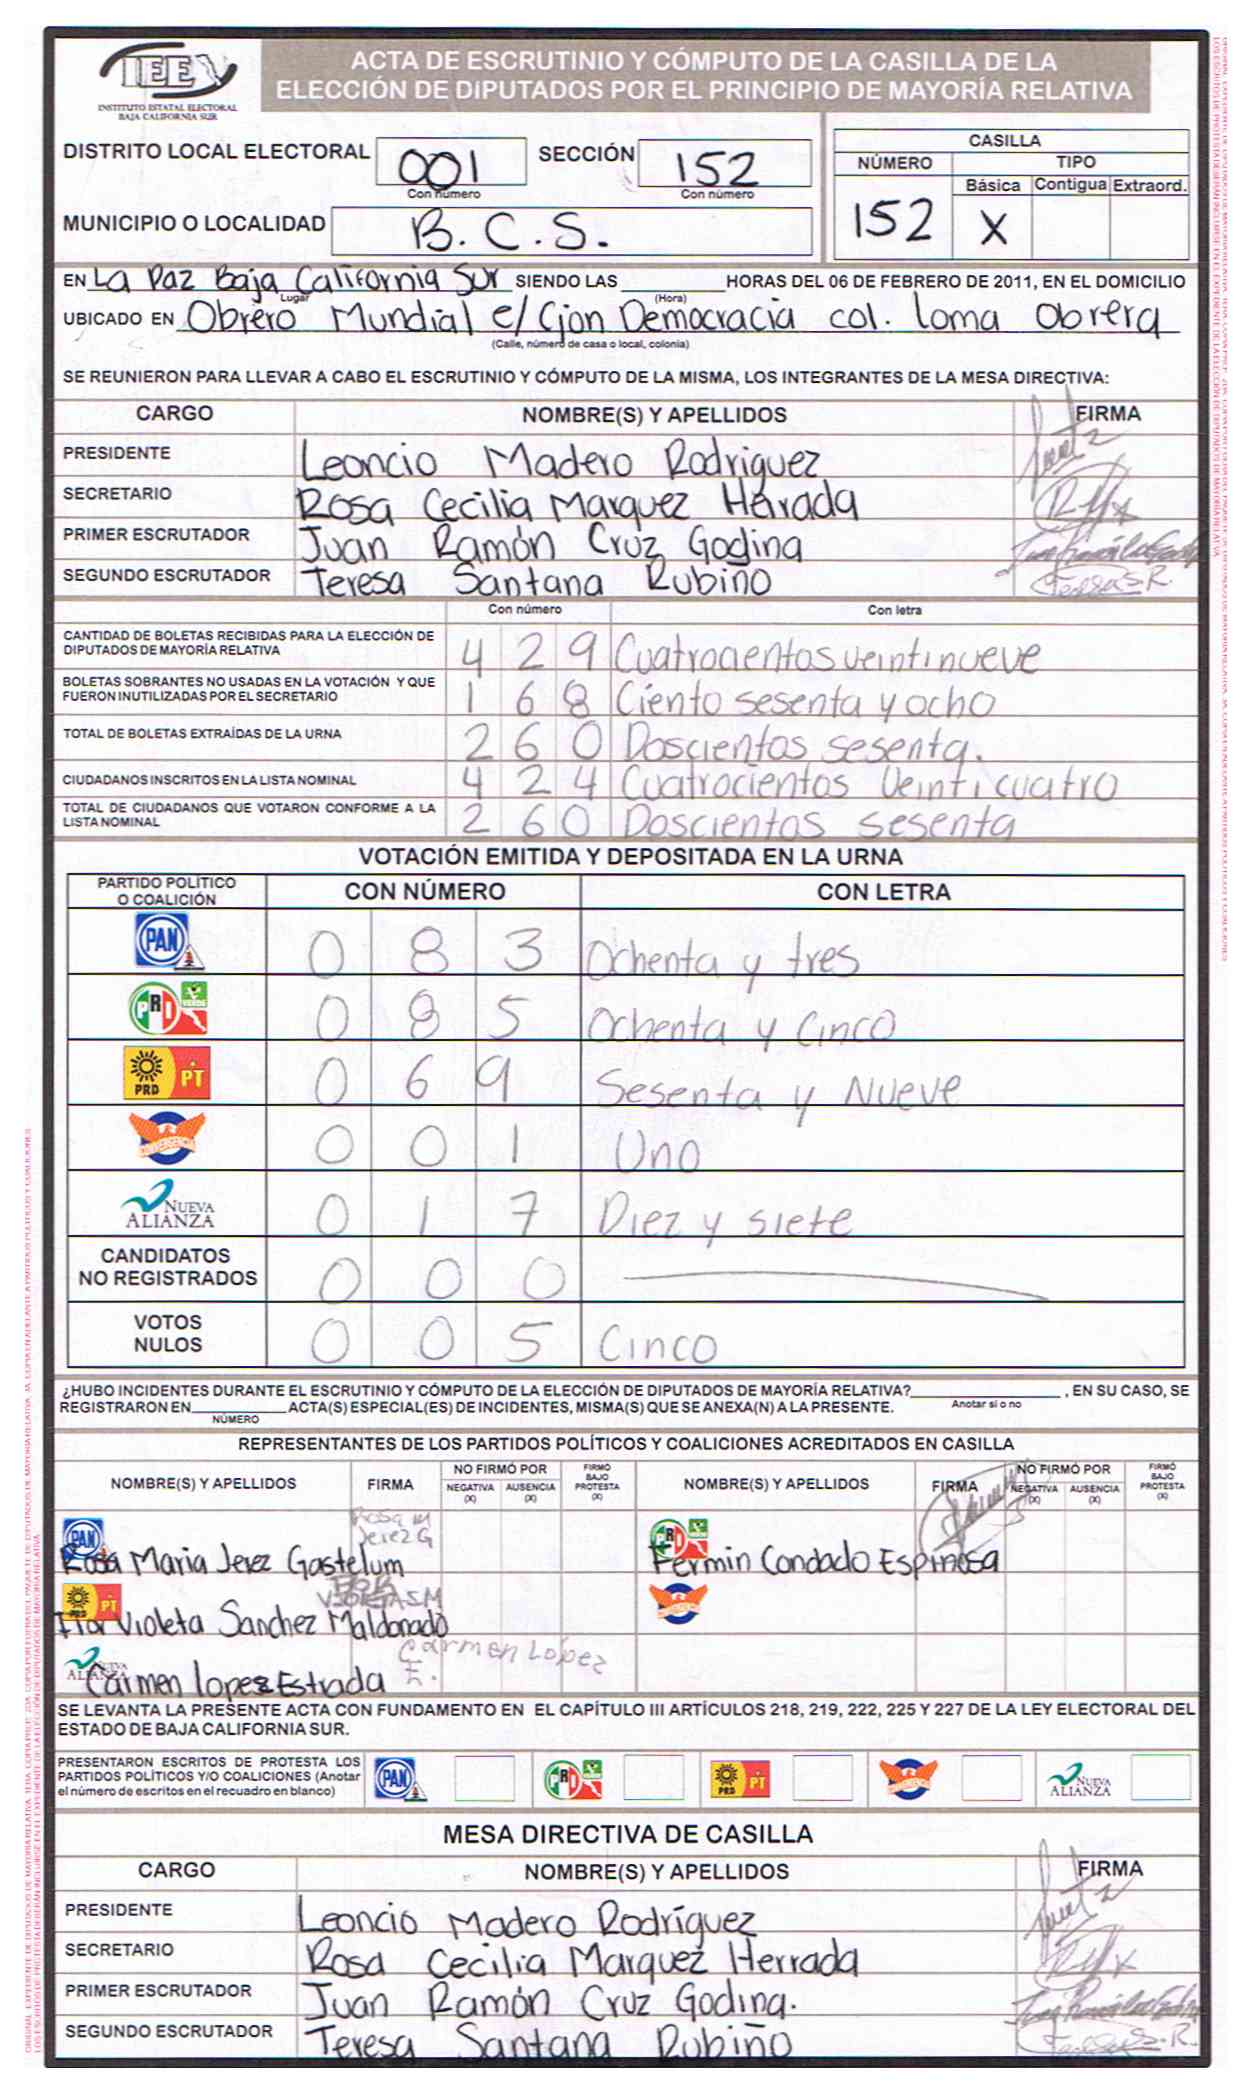 IEE
INSTITUTO ESTATAL ELECTORAL
BAJA CALIFORNIA SUR
ACTA DE ESCRUTINIO Y CÓMPUTO DE LA CASILLA DE LA
ELECCIÓN DE DIPUTADOS POR EL PRINCIPIO DE MAYORÍA RELATIVA
DISTRITO LOCAL ELECTORAL 001 SECCIÓN 152
Con número Con número
MUNICIPIO O LOCALIDAD B.C.S.
CASILLA
NÚMERO TIPO
Básica Contigua Extraord.
152 X
EN La Paz Baja California Sur SIENDO LAS HORAS DEL 06 DE FEBRERO DE 2011, EN EL DOMICILIO
Lugar (Hora)
UBICADO EN Obrero Mundial e/ Cjon Democracia col. Loma Obrera
(Calle, número de casa o local, colonia)
SE REUNIERON PARA LLEVAR A CABO EL ESCRUTINIO Y CÓMPUTO DE LA MISMA, LOS INTEGRANTES DE LA MESA DIRECTIVA:
CARGO NOMBRE(S) Y APELLIDOS FIRMA
PRESIDENTE Leoncio Madero Rodriguez
SECRETARIO Rosa Cecilia Marquez Harada
PRIMER ESCRUTADOR Juan Ramón Cruz Godina
SEGUNDO ESCRUTADOR Teresa Santana Rubiño Teresa S.R.
Con número Con letra
CANTIDAD DE BOLETAS RECIBIDAS PARA LA ELECCIÓN DE
DIPUTADOS DE MAYORÍA RELATIVA 4 2 9 Cuatrocientos veintinueve
BOLETAS SOBRANTES NO USADAS EN LA VOTACIÓN Y QUE
FUERON INUTILIZADAS POR EL SECRETARIO 1 6 8 Ciento sesenta y ocho
TOTAL DE BOLETAS EXTRAÍDAS DE LA URNA 2 6 0 Doscientos sesenta.
CIUDADANOS INSCRITOS EN LA LISTA NOMINAL 4 2 4 Cuatrocientos Veinticuatro
TOTAL DE CIUDADANOS QUE VOTARON CONFORME A LA
LISTA NOMINAL 2 6 0 Doscientos sesenta
VOTACIÓN EMITIDA Y DEPOSITADA EN LA URNA
PARTIDO POLÍTICO
O COALICIÓN CON NÚMERO CON LETRA
PAN 0 8 3 Ochenta y tres
PRI VERDE 0 8 5 Ochenta y Cinco
PRD PT 0 6 9 Sesenta y Nueve
CONVERGENCIA 0 0 1 Uno
NUEVA ALIANZA 0 1 7 Diez y siete
CANDIDATOS
NO REGISTRADOS 0 0 0
VOTOS
NULOS 0 0 5 Cinco
¿HUBO INCIDENTES DURANTE EL ESCRUTINIO Y CÓMPUTO DE LA ELECCIÓN DE DIPUTADOS DE MAYORÍA RELATIVA? , EN SU CASO, SE
Anotar si o no
REGISTRARON EN ACTA(S) ESPECIAL(ES) DE INCIDENTES, MISMA(S) QUE SE ANEXA(N) A LA PRESENTE.
NÚMERO
REPRESENTANTES DE LOS PARTIDOS POLÍTICOS Y COALICIONES ACREDITADOS EN CASILLA
NOMBRE(S) Y APELLIDOS FIRMA NO FIRMÓ POR NEGATIVA (X) AUSENCIA (X) FIRMÓ BAJO PROTESTA (X) NOMBRE(S) Y APELLIDOS FIRMA NO FIRMÓ POR NEGATIVA (X) AUSENCIA (X) FIRMÓ BAJO PROTESTA (X)
PAN Rosa Maria Jerez Gastelum Rosa M Jerez G PRI Fermin Condado Espinosa
PRD PT Flor Violeta Sanchez Maldonado FLOR VIOLETA S.M
NUEVA ALIANZA Carmen Lopez Estrada Carmen López E.
SE LEVANTA LA PRESENTE ACTA CON FUNDAMENTO EN EL CAPÍTULO III ARTÍCULOS 218, 219, 222, 225 Y 227 DE LA LEY ELECTORAL DEL
ESTADO DE BAJA CALIFORNIA SUR.
PRESENTARON ESCRITOS DE PROTESTA LOS
PARTIDOS POLÍTICOS Y/O COALICIONES (Anotar
el número de escritos en el recuadro en blanco) PAN PRI PRD PT CONVERGENCIA NUEVA ALIANZA
MESA DIRECTIVA DE CASILLA
CARGO NOMBRE(S) Y APELLIDOS FIRMA
PRESIDENTE Leoncio Madero Rodríguez
SECRETARIO Rosa Cecilia Marquez Herrada
PRIMER ESCRUTADOR Juan Ramón Cruz Godina.
SEGUNDO ESCRUTADOR Teresa Santana Rubiño